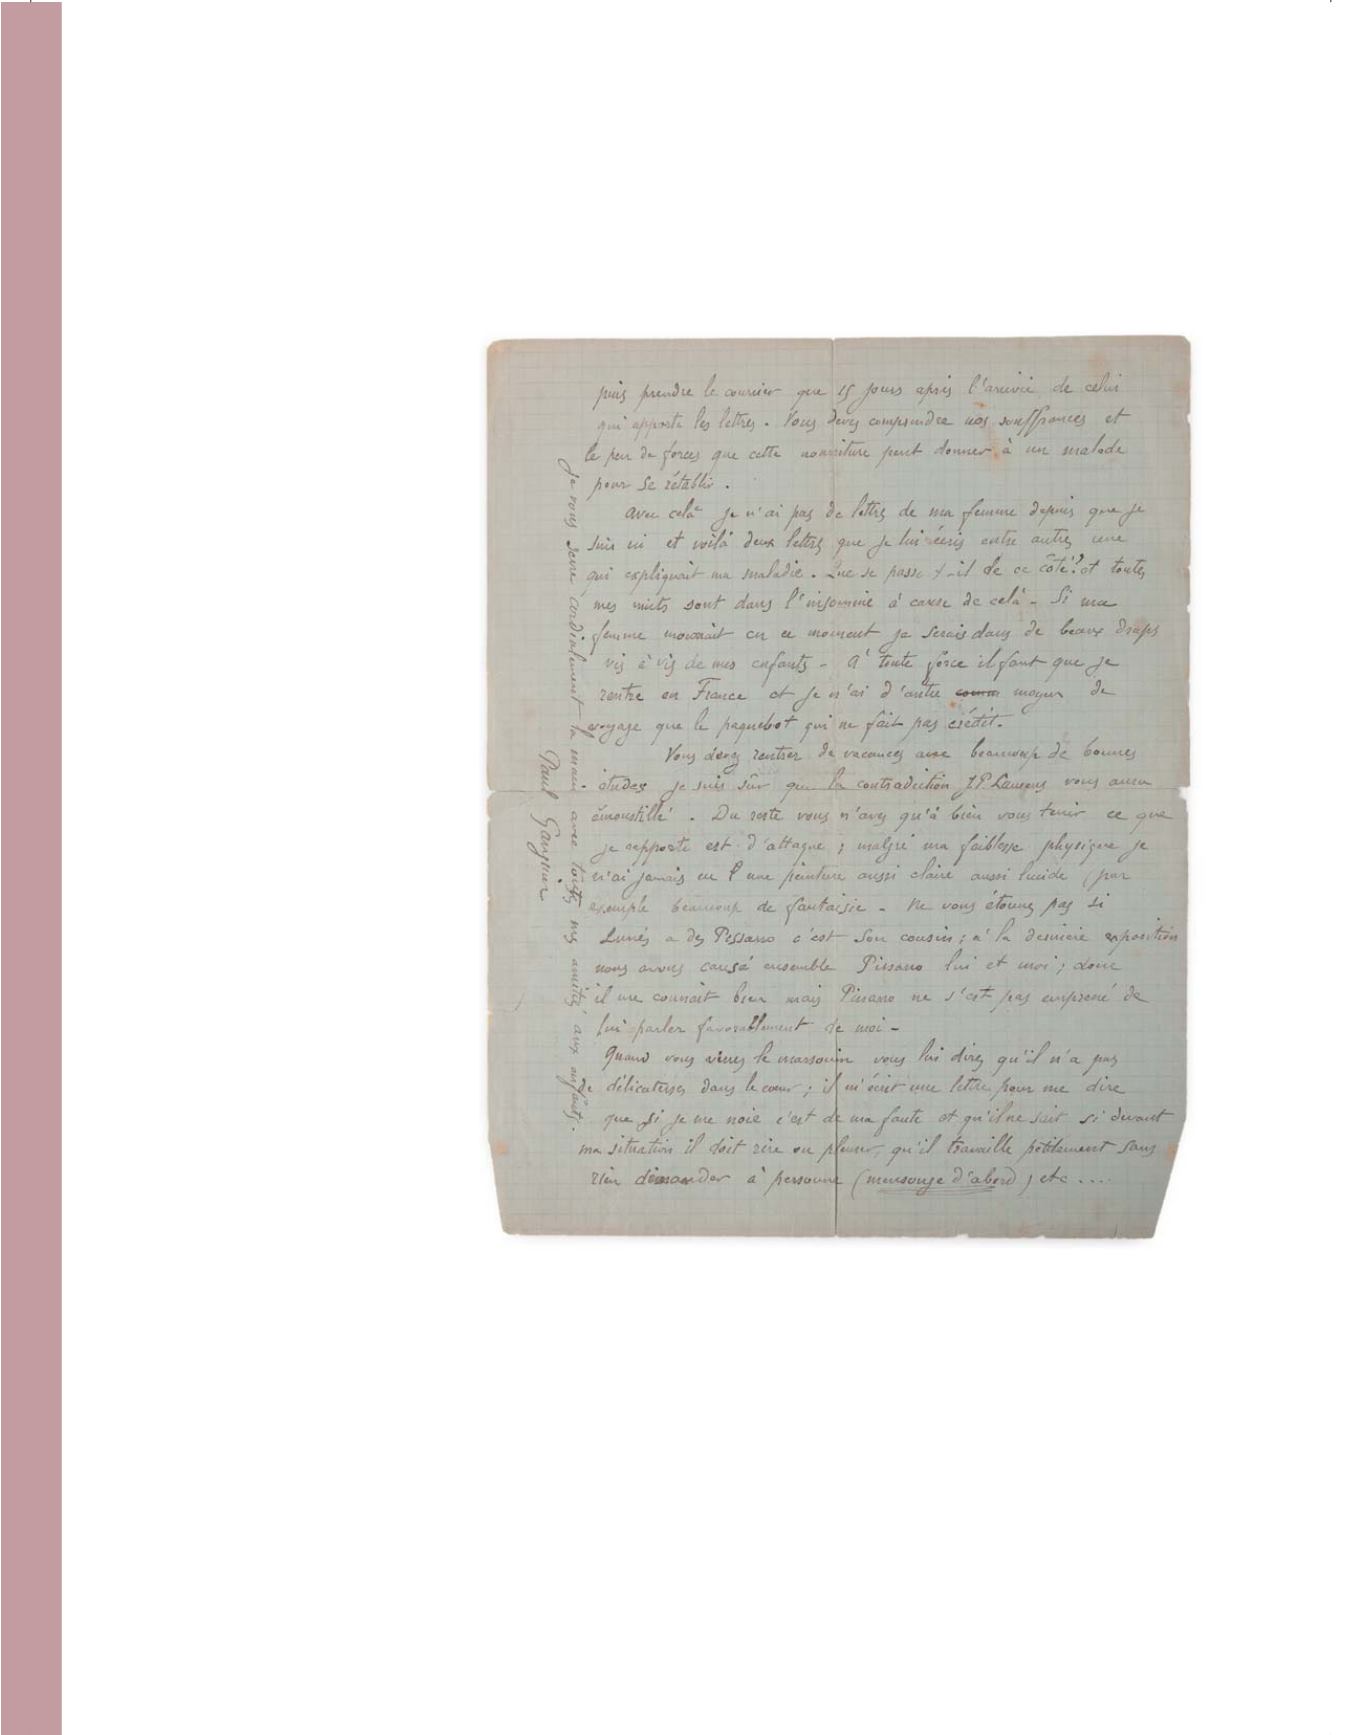 puis prendre le courrier que 15 jours après l'arrivée de celui
qui apporte les lettres. Vous devez comprendre nos souffrances et
le peu de forces que cette nourriture peut donner à un malade
pour se rétablir.
Avec celà je n'ai pas de lettres de ma femme depuis que je
suis ici et voilà deux lettres que je lui écris entre autres une
qui expliquait ma maladie. Que se passe t-il de ce côté? et toutes
mes nuits sont dans l'insomnie à cause de celà - Si ma
femme mourait en ce moment je serais dans de beaux draps
vis à vis de mes enfants - A toute force il faut que je
rentre en France et je n'ai d'autre moyen de
voyage que le paquebot qui ne fait pas crédit.
Vous devez rentrer de vacances avec beaucoup de bonnes
études je suis sûr que la contradiction J.P. Laurens vous aura
émoustillé. Du reste vous n'avez qu'à bien vous tenir ce que
je rapporte est d'attaque; malgré ma faiblesse physique je
n'ai jamais eu une peinture aussi claire aussi lucide (par
exemple beaucoup de fantaisie - Ne vous étonnez pas si
a des Pissarro c'est son cousin; à la dernière exposition
nous avons causé ensemble Pissarro lui et moi; donc
il me connait bien mais Pissarro ne s'est pas empressé de
lui parler favorablement de moi -
Quand vous verrez le marsouin vous lui direz qu'il n'a pas
de délicatesses dans le cœur; il m'écrit une lettre pour me dire
que si je me noie c'est de ma faute et qu'il ne sait si devant
ma situation il doit rire ou pleurer, qu'il travaille petitement sans
rien demander à personne (mensonge d'abord) etc....
Je vous serre cordialement la main avec toutes mes amitiés aux enfants.
Paul Gauguin